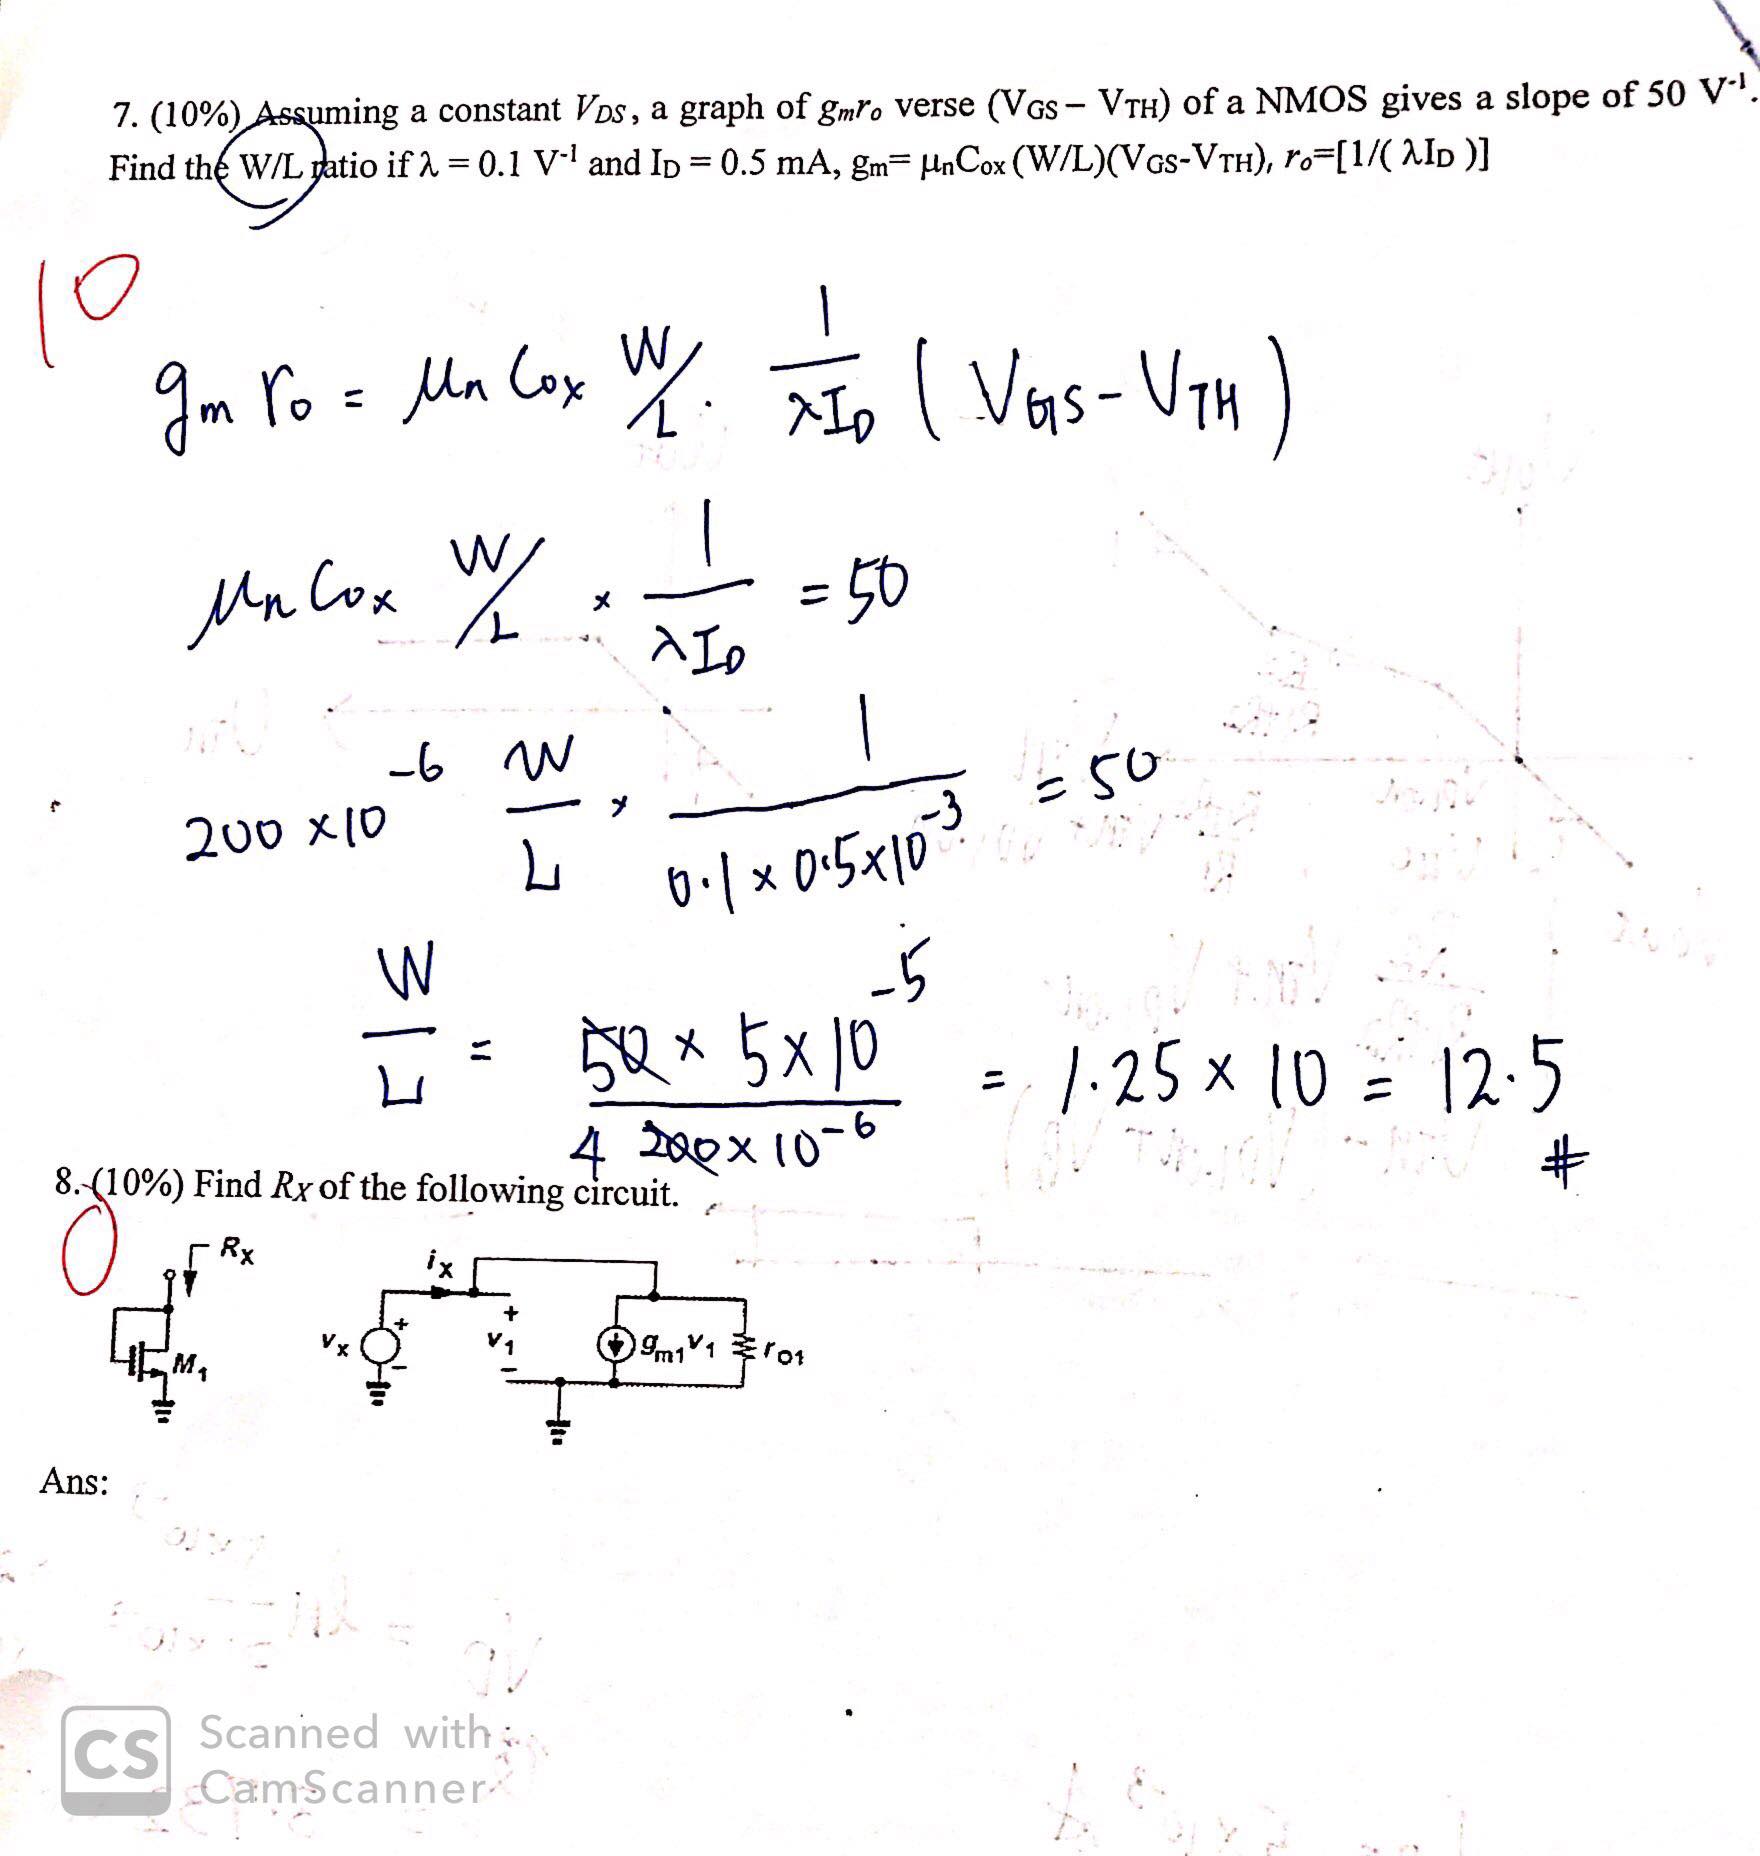 7. (10%) Assuming a constant VDS, a graph of gmro verse (VGS – VTH) of a NMOS gives a slope of 50 V-1.
Find the W/L ratio if λ = 0.1 V-1 and ID = 0.5 mA, gm= μnCox (W/L)(VGS-VTH), ro=[1/( λID )]
10
gm ro = μn Cox W/L · 1/λID ( VGS - VTH )
μn Cox W/L × 1/λID = 50
200 ×10-6 W/L × 1/0.1 × 0.5×10-3 = 50
W/L = 50 × 5×10-5 / 4 200×10-6 = 1.25 × 10 = 12.5 #
8. (10%) Find Rx of the following circuit.
0
Rx
M1
vx
ix
+
v1
–
gm1v1
rO1
Ans:
CS
Scanned with
CamScanner